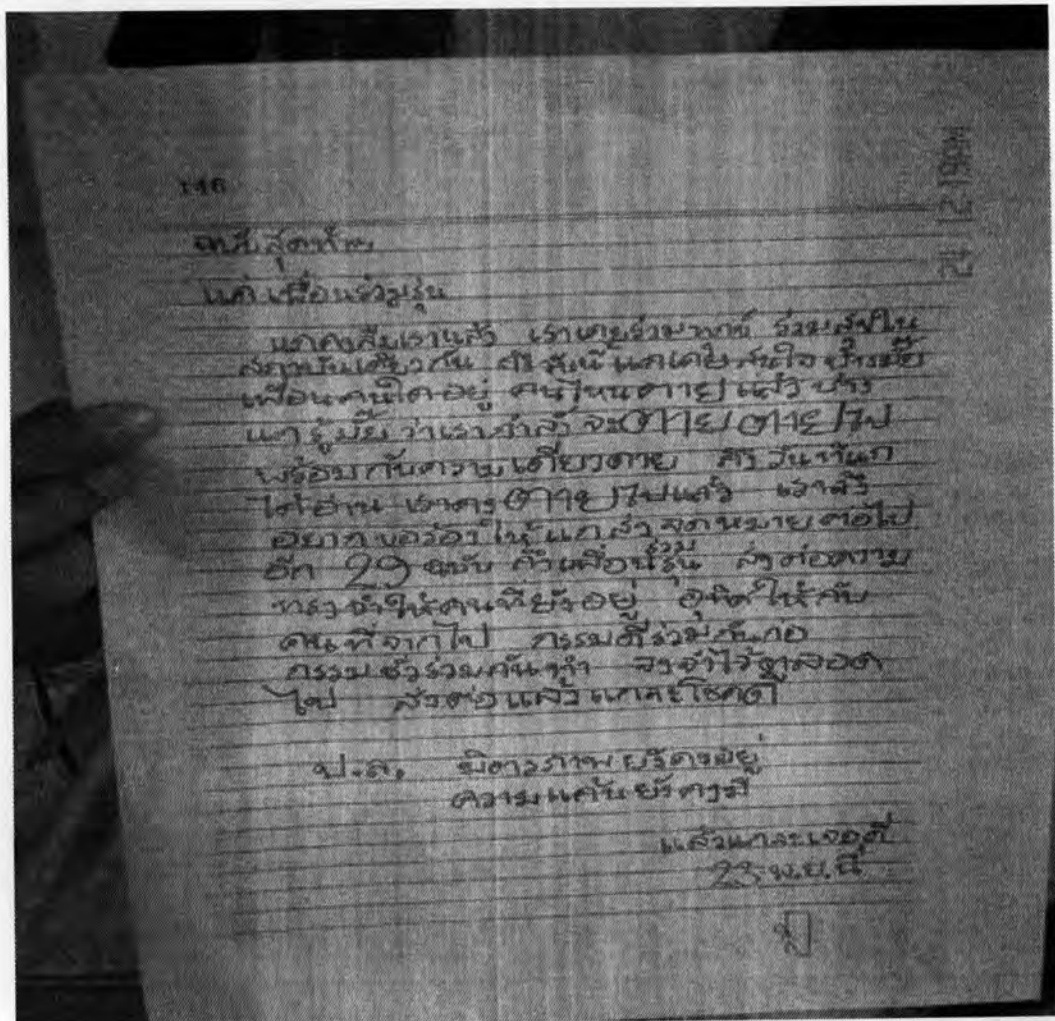 146
24 12 19AM
แด่ เพื่อนร่วมรุ่น
แกคงลืมเราแล้ว เราเคยร่วมทุกข์ ร่วมสุขใน
สถาบันเดียวกัน ถึงวันนี้ แกเคยสนใจ บ้างมั้ย
เพื่อนคนใดอยู่ คนไหนตายแล้วบ้าง
แกรู้มั้ย ว่าเรากำลังจะตาย ตายไป
พร้อมกับความเดียวดาย ถึงวันที่แก
ได้อ่าน เราคงตายไปแล้ว เราจึง
อยากขอร้องให้แกส่งจดหมายต่อไป
อีก 29 ฉบับ ถึงเพื่อนร่วมรุ่น ส่งต่อความ
ทรงจำให้คนที่ยังอยู่ อุทิศให้กับ
คนที่จากไป กรรมดีร่วมกันก่อ
กรรมชั่วร่วมกันทำ จงจำไว้
ไป ส่งต่อแล้วแกจะโชคดี
ป.ล. มิตรภาพยังคงอยู่
ความแค้นยังคงมี
แล้วแกจะเจอดี
23 พ.ย. นี้